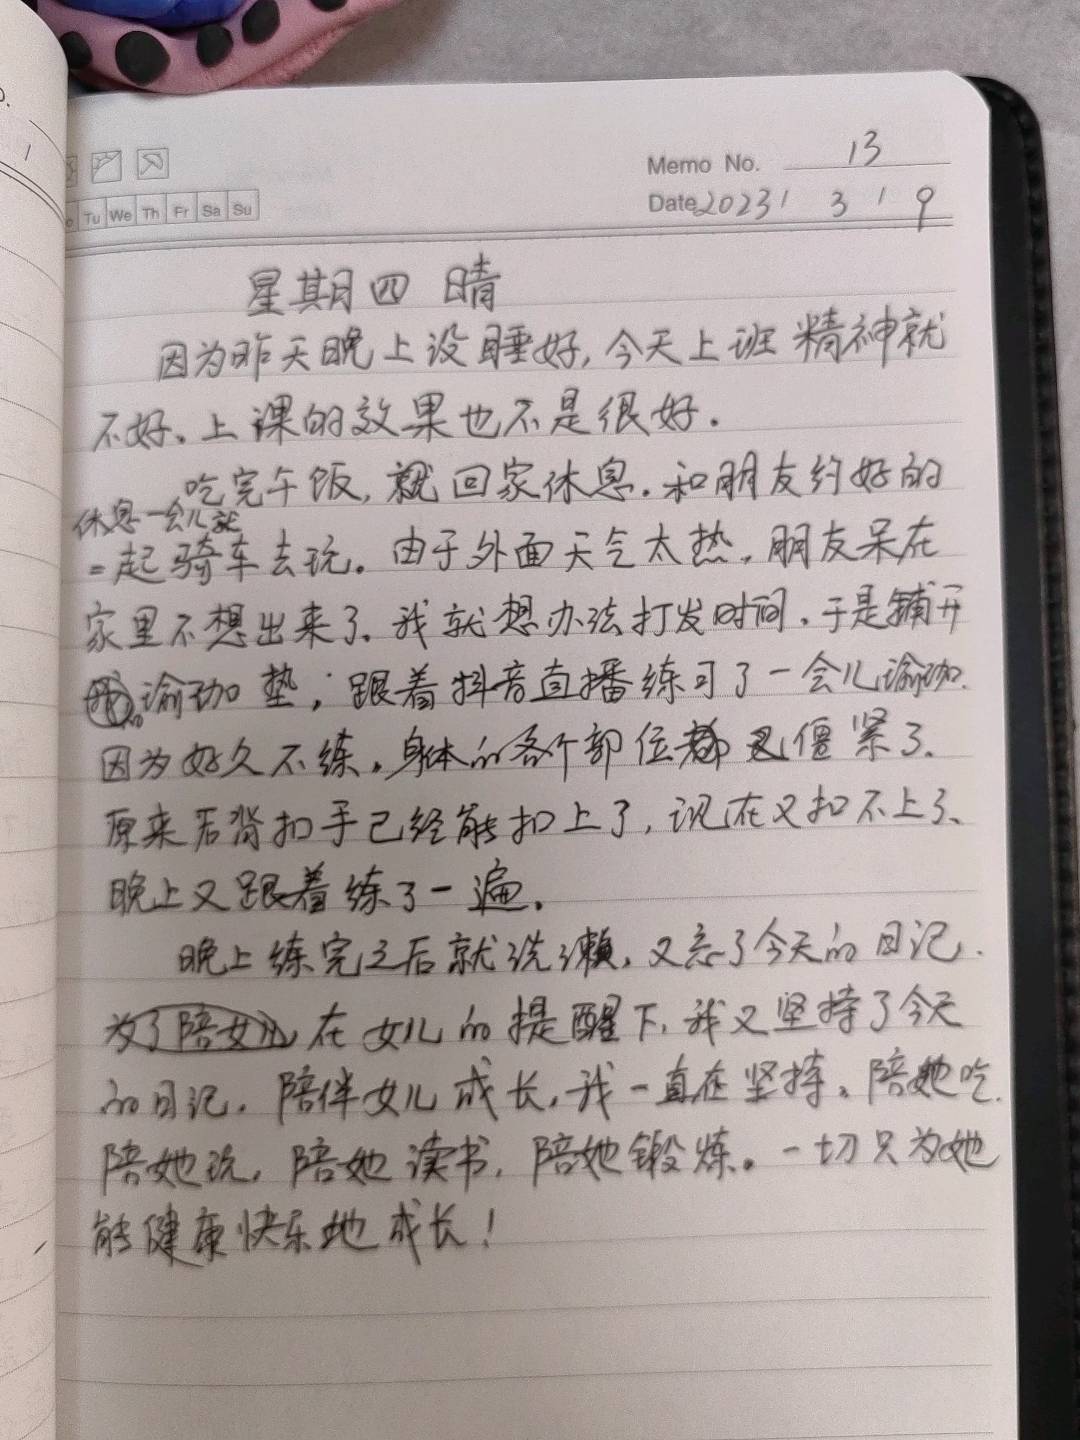 Memo No. 13
Tu We Th Fr Sa Su
Date 2023 / 3 / 9
星期四 晴
因为昨天晚上没睡好,今天上班精神就
不好、上课的效果也不是很好.
吃完午饭,就回家休息.和朋友约好的
休息一会儿就
一起骑车去玩。由于外面天气太热,朋友呆在
家里不想出来了.我就想办法打发时间.于是铺开
瑜珈垫;跟着抖音直播练习了一会儿瑜珈.
因为好久不练,身体的各个部位都又僵紧了.
原来后背扣手已经能扣上了,现在又扣不上了、
晚上又跟着练了一遍.
晚上练完之后就洗漱,又忘了今天的日记.
为了陪女儿 在女儿的提醒下,我又坚持了今天
的日记.陪伴女儿成长,我一直在坚持。陪她吃.
陪她玩,陪她读书,陪她锻炼。一切只为她
能健康快乐地成长!